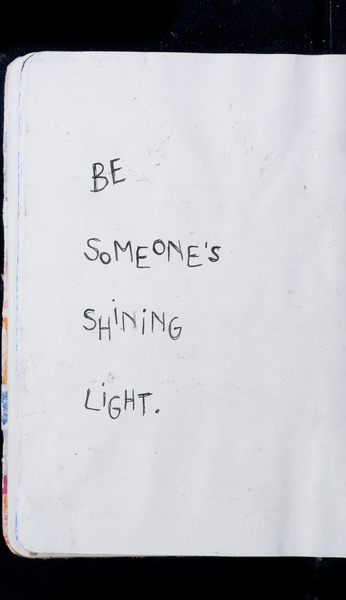 BE
SOMEONE'S
SHiNiNG
LiGHT.